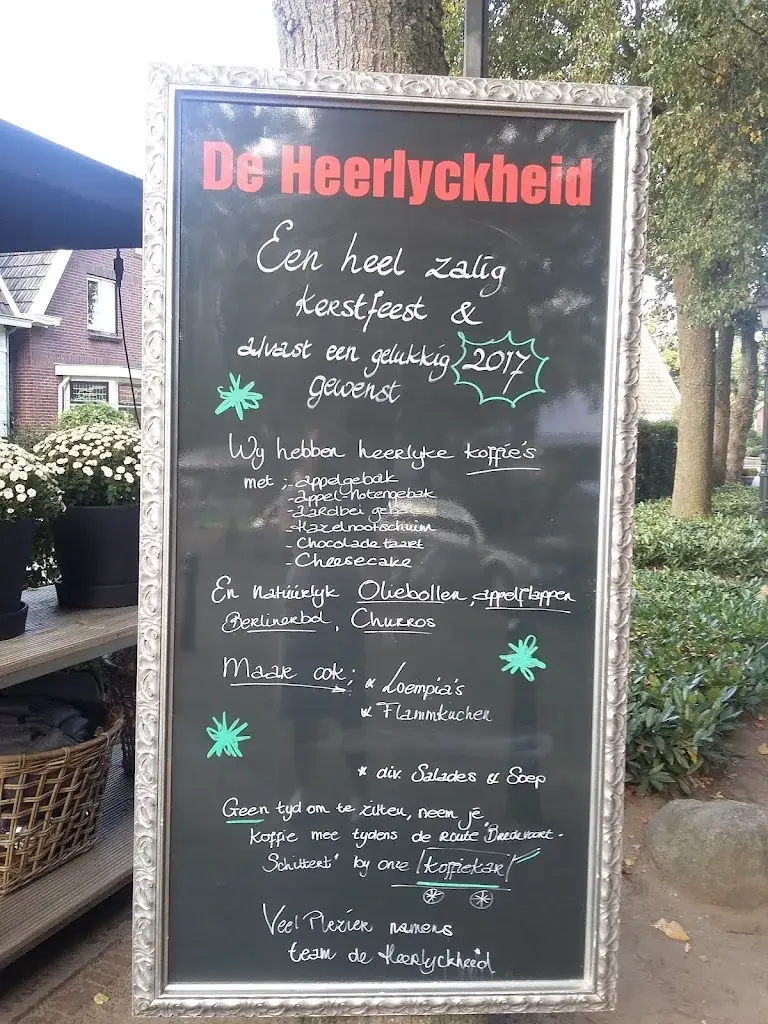 De Heerlyckheid
Een heel zalig
kerstfeest &
alvast een gelukkig 2017
gewenst
Wy hebben heerlyke koffie's
met ;- appelgebak
- appel-notengebak
- Aardbei gebak
- Hazelnootschuim
- Chocolade taart
- Cheesecake
En natuurlyk Oliebollen, appelflappen
Berlinerbol, Churros
Maar ook; * Loempia's
* Flammkuchen
* div. Salades & Soep
Geen tyd om te zitten, neem je
koffie mee tydens de route "Bredevoort-
Schittert" by onze koffiekar
Veel Plezier namens
team de Heerlyckheid